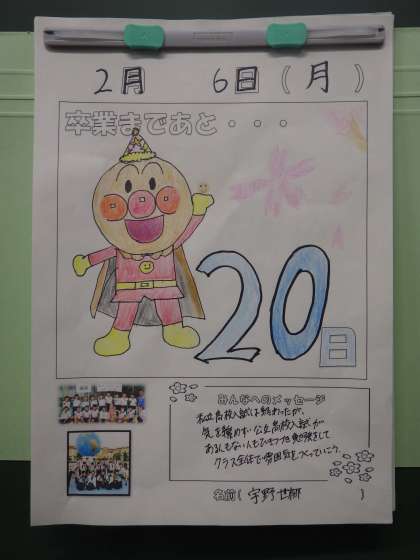 2月 6日(月)
卒業まであと・・・
20日
みんなへのメッセージ
私立高校入試は終わったが、
気を緩めず、公立高校入試が
ある人もない人もひきつづき勉強をして
クラス全体で雰囲気をつくっていこう。
名前( 宇野 )